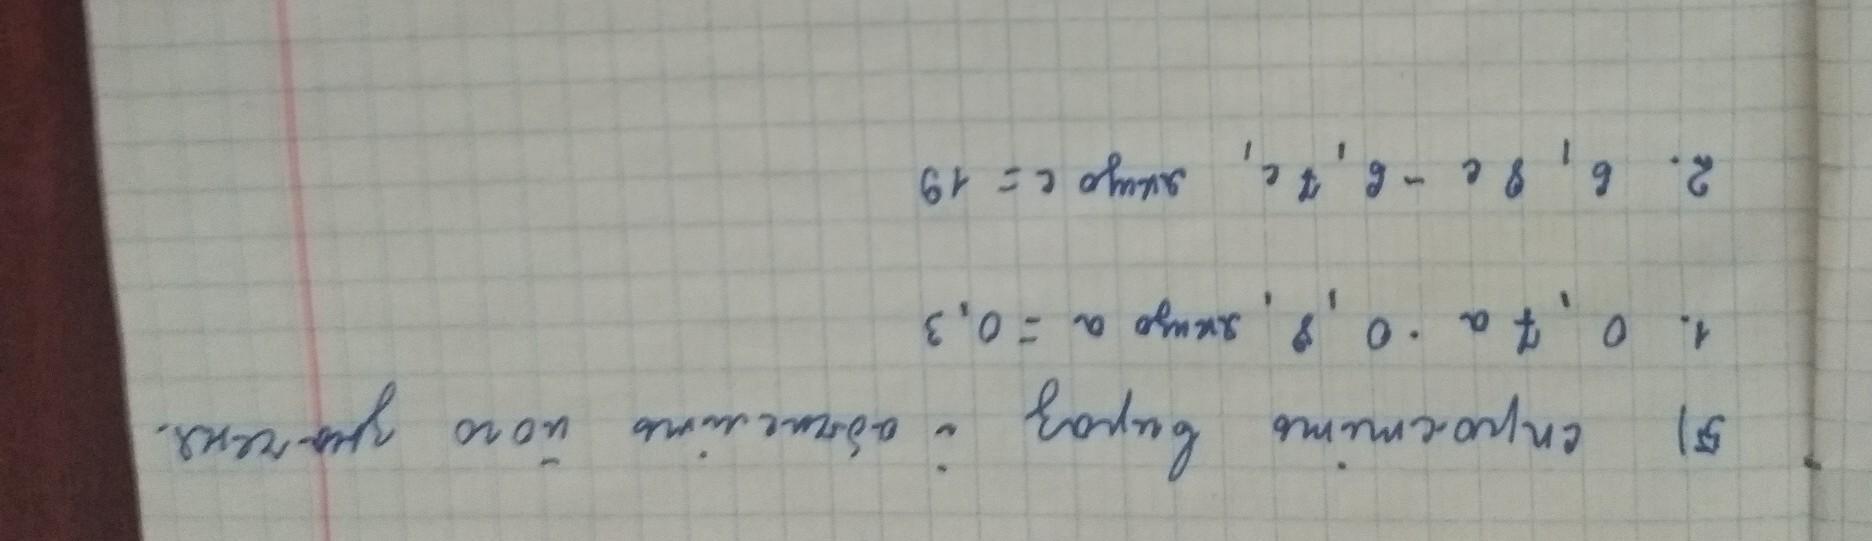 5) спростіть вираз і обчисліть його значеня.
1. 0,7a · 0,8, якщо a = 0,3
2. 6,8c - 6,7c, якщо c = 19